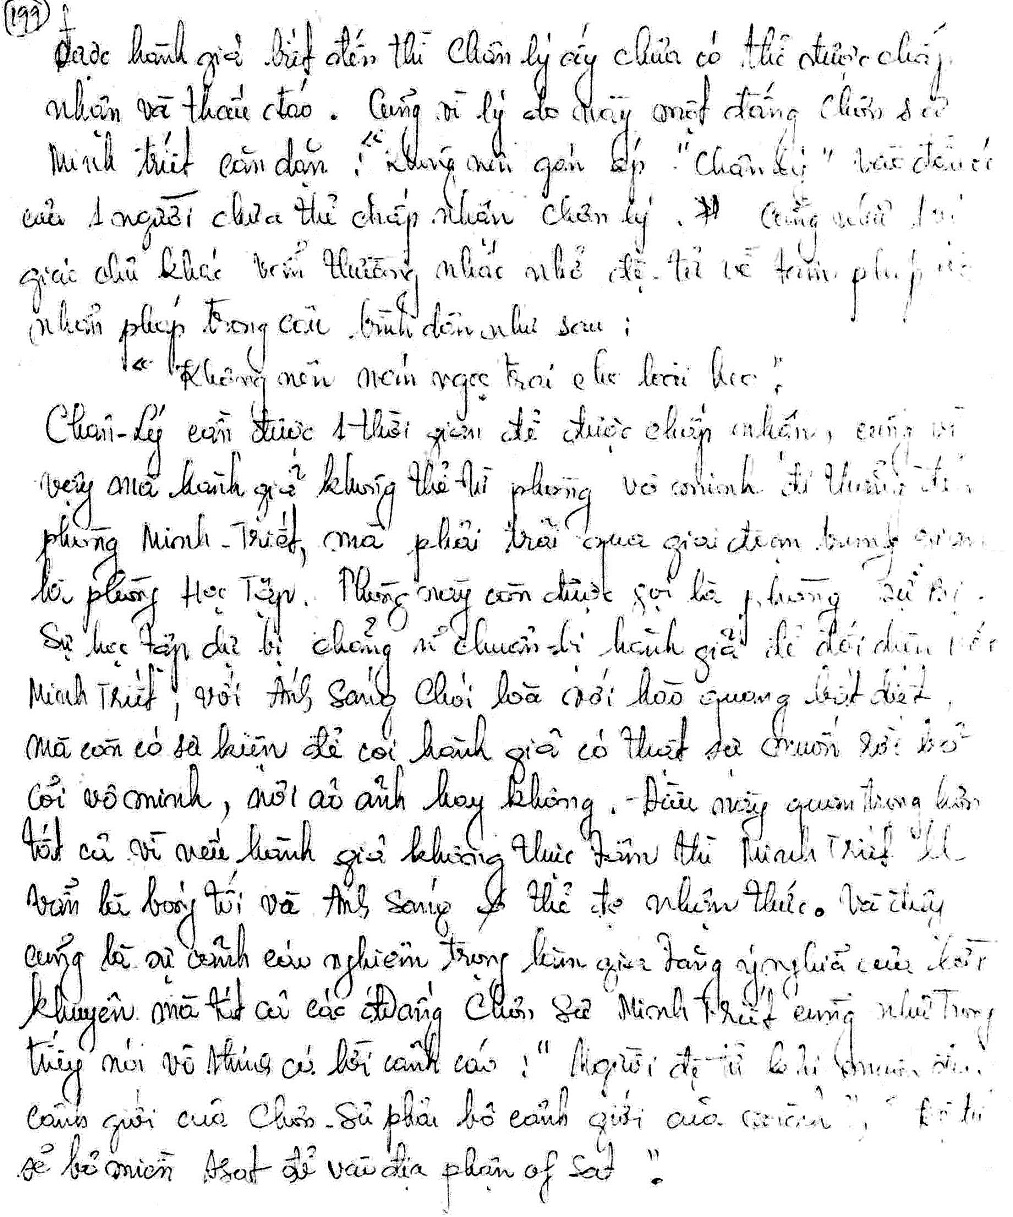 199
được hành giả biết đến thì Chân lý ấy chưa có thể được chấp
nhận và thấu đáo. Cũng vì lý do này một đấng Chơn sư
Minh triết căn dặn : "Không nên gán ép "Chân lý" vào đầu óc
của 1 người chưa thể chấp nhận chân lý." Cũng như
giác chủ khác vẫn thường nhắc nhở đệ-tử về tâm pháp
nhơn pháp trong câu bình dân như sau :
"Không nên ném ngọc trai cho loài heo".
Chân-Lý cần được 1 thời gian để được chấp nhận, cũng vì
vậy mà hành giả không thể từ phòng vô minh đi thẳng đến
phòng Minh-Triết, mà phải trãi qua giai đoạn trung gian
là phòng Học Tập. Phòng này còn được gọi là phòng Dự Bị.
Sự học tập dự bị chẳng những chuẩn-bị hành giả để đối diện với
Minh Triết, với Ánh Sáng Chói loà với hào quang bất diệt,
mà còn có sự kiện để coi hành giả có thật sự muốn rời bỏ
cỏi vô minh, nơi ảo ảnh hay không. - Điều này quan trọng hơn
tất cả vì nếu hành giả không thực tâm thì Minh Triết
vẫn là bóng tối và Ánh Sáng thể đc nhận thức. Và đây
cũng là sự cảnh cáo nghiêm trọng làm gia tăng ý nghĩa của lời
khuyên mà tất cả các Đấng Chơn Sư Minh Triết cũng như Trong
tiếng nói vô thinh có lời cảnh cáo : " Người đệ tử khi muốn
cảnh giới của Chơn-Sư phải bỏ cảnh giới của mình",
sẻ bỏ miền Asat để vào địa phận of Sat ".